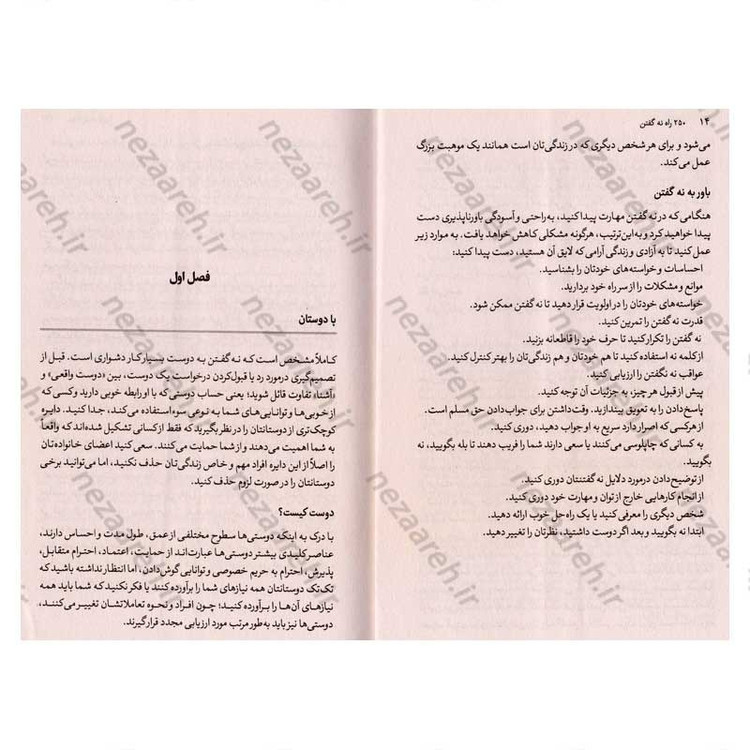 ۱۴ ۲۵۰ راه نه گفتن
می‌شود و برای هر شخص دیگری که در زندگی‌تان است همانند یک موهبت بزرگ
عمل می‌کند.
باور به نه گفتن
هنگامی که در نه گفتن مهارت پیدا کنید، به‌راحتی و آسودگی باورناپذیری دست
پیدا خواهید کرد و به این ترتیب، هرگونه مشکلی کاهش خواهد یافت. به موارد زیر
عمل کنید تا به آزادی و زندگی آرامی که لایق آن هستید، دست پیدا کنید:
احساسات و خواسته‌های خودتان را بشناسید.
موانع و مشکلات را از سر راه خود بردارید.
خواسته‌های خودتان را در اولویت قرار دهید تا نه گفتن ممکن شود.
قدرت نه گفتن را تمرین کنید.
نه گفتن را تکرار کنید تا حرف خود را قاطعانه بزنید.
از کلمه نه استفاده کنید تا هم خودتان و هم زندگی‌تان را بهتر کنترل کنید.
عواقب نه نگفتن را ارزیابی کنید.
پیش از قبول هر چیز، به جزئیات آن توجه کنید.
پاسخ‌دادن را به تعویق بیندازید. وقت‌داشتن برای جواب‌دادن حق مسلم است.
از هرکسی که اصرار دارد سریع به او جواب دهید، دوری کنید.
به کسانی که چاپلوسی می‌کنند یا سعی دارند شما را فریب دهند تا بله بگویید، نه
بگویید.
از توضیح‌دادن درمورد دلایل نه گفتنتان دوری کنید.
از انجام کارهایی خارج از توان و مهارت خود دوری کنید.
شخص دیگری را معرفی کنید یا یک راه‌حل خوب ارائه دهید.
ابتدا نه بگویید و بعد اگر دوست داشتید، نظرتان را تغییر دهید.
فصل اول
با دوستان
کاملاً مشخص است که نه گفتن به دوست بسیار کار دشواری است. قبل از
تصمیم‌گیری درمورد رد یا قبول‌کردن درخواست یک دوست، بین «دوست واقعی» و
«آشنا» تفاوت قائل شوید؛ یعنی حساب دوستی که با او رابطه خوبی دارید و کسی که
از خوبی‌ها و توانایی‌های شما به نوعی سوءاستفاده می‌کند، جدا کنید. دایره
کوچک‌تری از دوستانتان را در نظر بگیرید که فقط از کسانی تشکیل شده‌اند که واقعاً
به شما اهمیت می‌دهند و از شما حمایت می‌کنند. سعی کنید اعضای خانواده‌تان
را اصلاً از این دایره افراد مهم و خاص زندگی‌تان حذف نکنید، اما می‌توانید برخی
دوستانتان را در صورت لزوم حذف کنید.
دوست کیست؟
با درک به اینکه دوستی‌ها سطوح مختلفی از عمق، طول مدت و احساس دارند،
عناصر کلیدی بیشتر دوستی‌ها عبارت‌اند از حمایت، اعتماد، احترام متقابل،
پذیرش، احترام به حریم خصوصی و توانایی گوش‌دادن، اما انتظار نداشته باشید که
تک‌تک دوستانتان همه نیازهای شما را برآورده کنند یا فکر نکنید که شما باید همه
نیازهای آن‌ها را برآورده کنید؛ چون افراد و نحوه تعاملاتشان تغییر می‌کنند،
دوستی‌ها نیز باید به‌طور مرتب مورد ارزیابی مجدد قرار گیرند.
nezaareh.ir